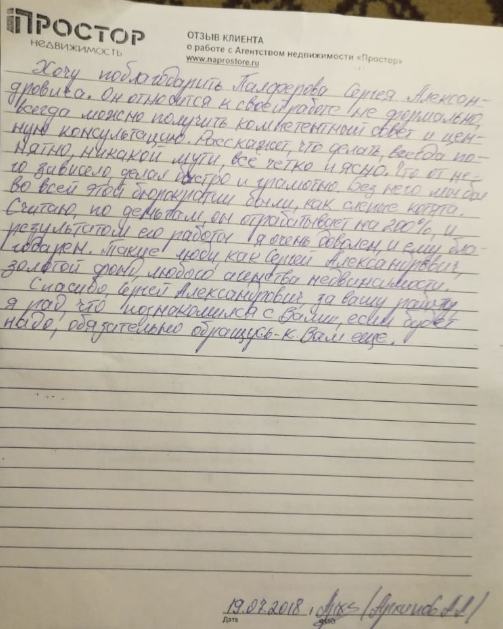 ПРОСТОР
недвижимость
ОТЗЫВ КЛИЕНТА
о работе с Агентством недвижимости «Простор»
www.naprostore.ru
Хочу поблагодарить Сергея Алексан-
дровича. Он относится к своей работе не формально,
всегда можно получить компетентный ответ и цен-
ную консультацию. Расскажет, что делать, всегда по-
нятно, никакой мути, всё четко и ясно. Что от не-
го зависело, делал быстро и грамотно. Без него мы бы
во всей этой бюрократии были, как слепые котята.
Считаю, по деньгам, он отрабатывает на 200%, и
результатом его работы я очень доволен, и ему бла-
годарен. Такие люди как Сергей Александрович,
золотой фонд любого агенства недвижимости.
Спасибо, Сергей Александрович, за вашу работу
я рад, что познакомился с Вами, если будет
надо, обязательно обращусь к Вам еще.
19.07.2018
Дата
ФИО